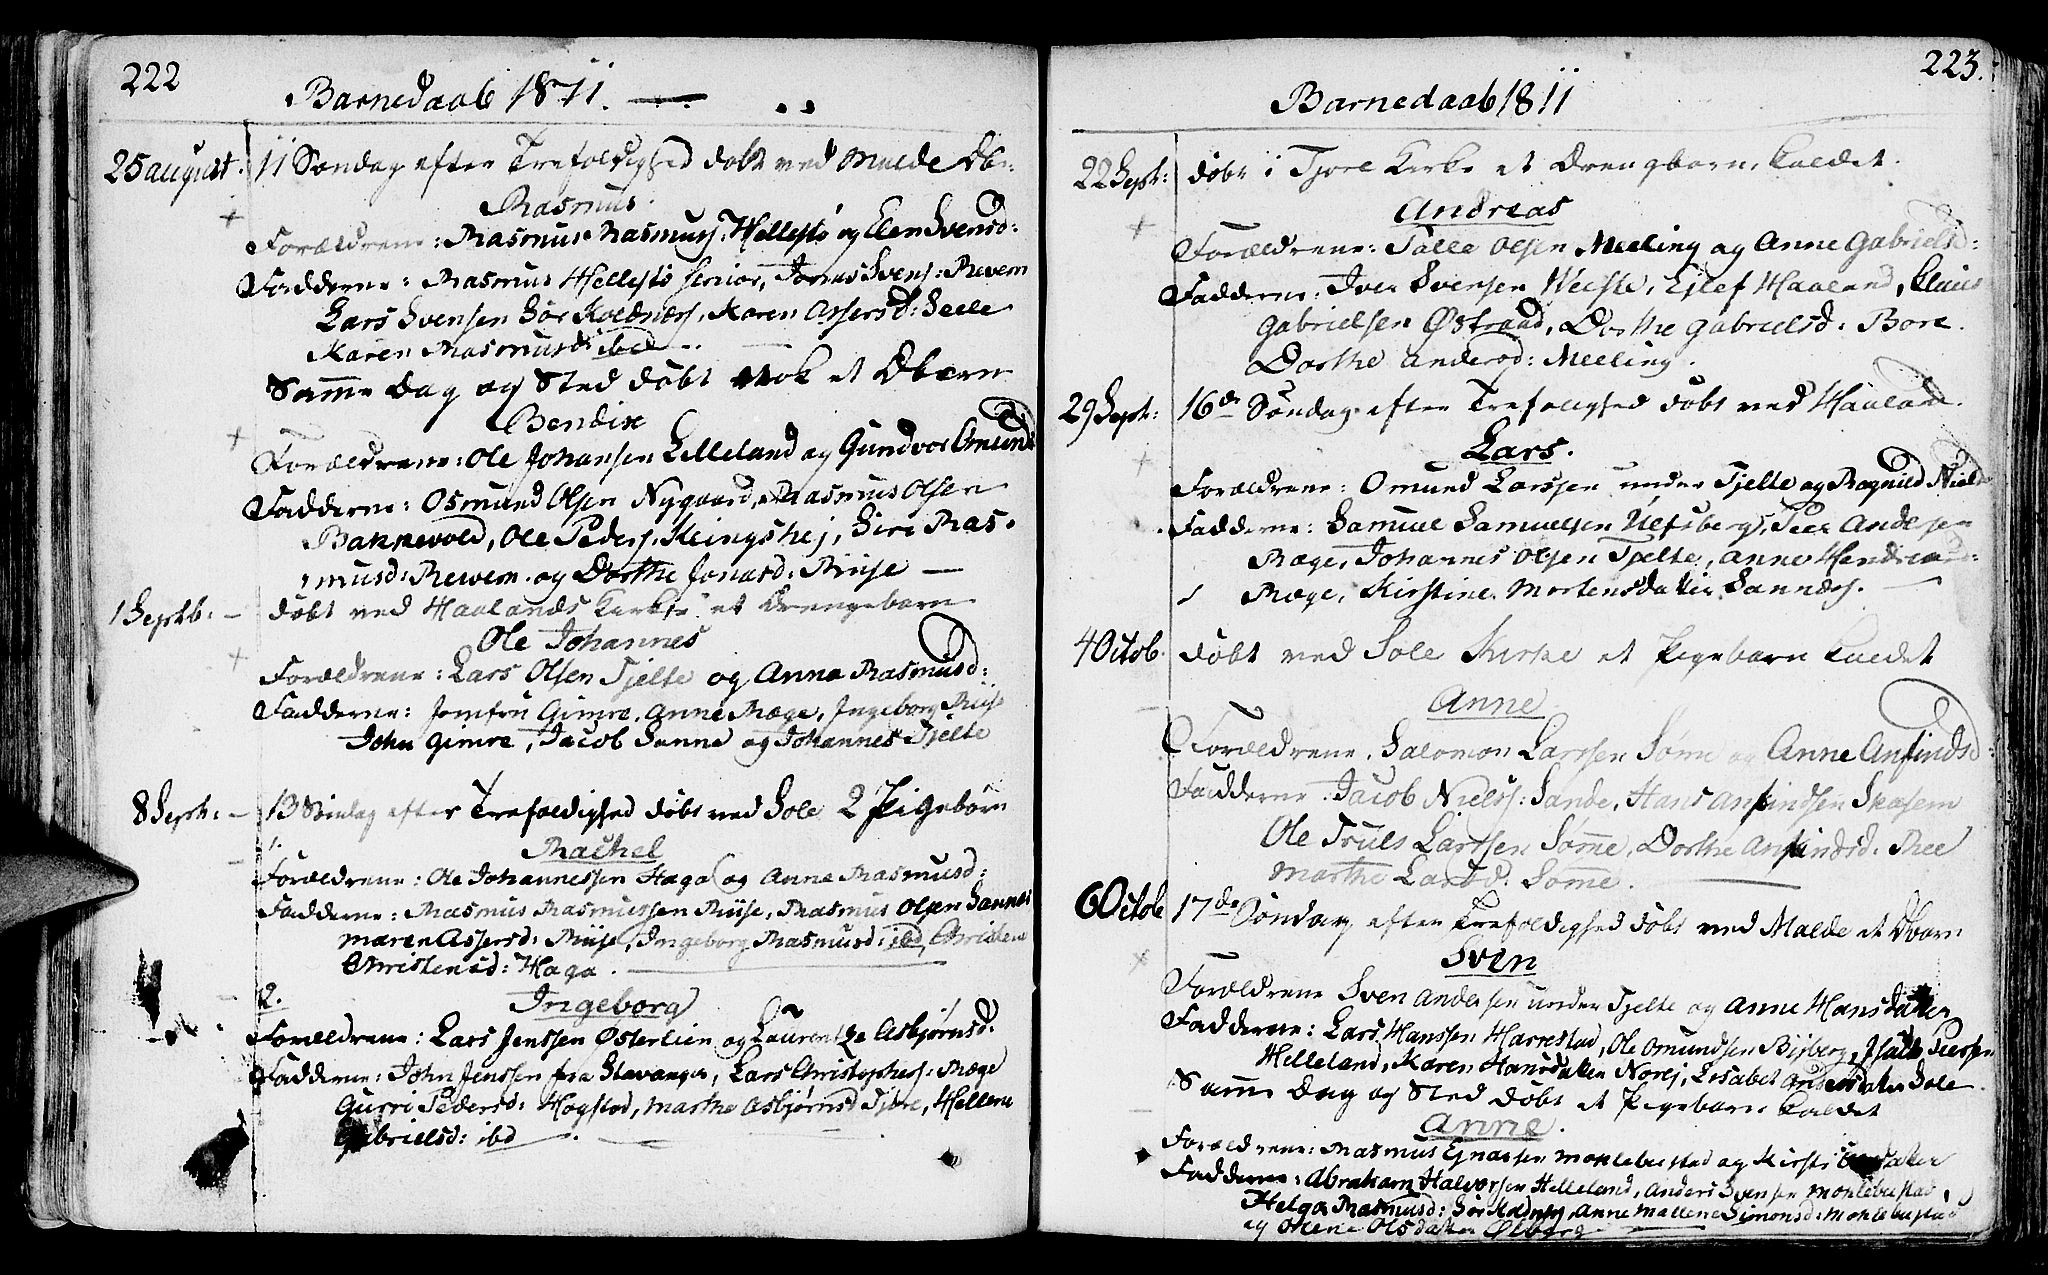 222
Barnedaab 1811.
25 august. 11 Søndag efter Trefoldighed døbt ved Malde Dbn:
Rasmus.
Forældrene: Rasmus Rasmusj. Hellestø og Elen Svensd:
Fadderne: Rasmus Hellestø senior, Jonas Svensj: Revem
Lars Svensen Sør Kolnæs, Karen Assersd: Seele
Karen Rasmusd: ibd
Samme Dag og Sted døbt et Dbarn
Bendix
Forældrene: Ole Johansen Lilleland og Gundvor Omunds
Fadderne: Osmund Olsen Nygaard, Rasmus Olsen
Bakkevold, Ole Pedersj. Meingshej, Siri Ras-
musd: Rewem og Dorthe Jonasd: Riise
1 Septb: døbt ved Haalands Kirke et Drengebarn
Ole Johannes
Forældrene: Lars Olsen Tjelte og Anna Rasmusd:
Fadderne: Jomfru Gimre, Anne Ræge, Ingeborg Riis
John Gimre, Jacob Sunne og Johannes Tjelte
8 Septb: 13 Søndag efter Trefoldighed døbt ved Sole 2 Pigebørn
1.
Rachel
Forældrene: Ole Johannessen Haga og Anne Rasmusd:
Fadderne: Rasmus Rasmussen Riise, Rasmus Olsen Sannes
Maren Assersd: Riise, Ingeborg Rasmusd: ibd, Christene
Christensd: Haga.
2.
Ingeborg
Forældrene: Lars Jenssen Østerlien og Laurentze Asbjørnsd.
Fadderne: John Jenssen fra Stavanger, Lars Christophersj: Ræge
Gurri Pedersd: Hogstad, Marthe Asbjørnsd Tjore, Hellene
Gabrielsd: ibd
223.
Barnedaab 1811
22 Sept: døbt i Tjore Kirke et Drengbarn, kaldet
Andreas
Forældrene: Tølle Olsen Meeling og Anne Gabrielsd:
Fadderne: Iver Svensen Weiste, Ejlef Haaland, Claus
Gabrielsen Østraad, Dorthe Gabrielsd: Bore.
Dorthe Andersd: Meeling.
29 Sept: 16de Søndag efter Trefolighed døbt ved Haaland.
Lars.
Forældrene: Omund Larssen under Tjelte og Ragnild Niels
Fadderne: Samuel Samuelsen Ulfsberg, Peer Andersen
Ræge, Johannes Olsen Tjelte, Anne Hendricsd:
Ræge, Kirstine Mortensdatter Sannes.
4 Octob. døbt ved Sole Kirke et Pigebarn kaldet
Anne
Forældrene, Salomon Larssen Sømme og Anne Anfindsd:
Fadderne. Jacob Nielsj: Sande, Hans Anfindsen Skasem
Ole Truls Larssen Sømme, Dorthe Anfindsd: Ree
Marthe Larsd: Sømme.
6 Octob 17de Søndag efter Trefoldighed døbt ved Malde et Dbarn
Sven
Forældrene Sven Andersen under Tjelte og Anne Hansdatter
Fadderne: Lars Hanssen Harrestad, Ole Omundsen Bijberg, Isach Peersen
Helleland, Karen Hansdatter Norej, Lisabet Andersdatter Sole.
Samme Dag og Sted døbt et Pigebarn kaldet
Anne.
Forældrene: Rasmus Ejnarsen Mohlebustad og Kirsti
Fadderne: Abraham Halvorsen Helleland, Anders Svensen Mohlebustad,
Helga Rasmusd: Sør Kolnes, Anne Mallene Simonsd: Mohlebustad
og Marie Olsdatter Ølberg